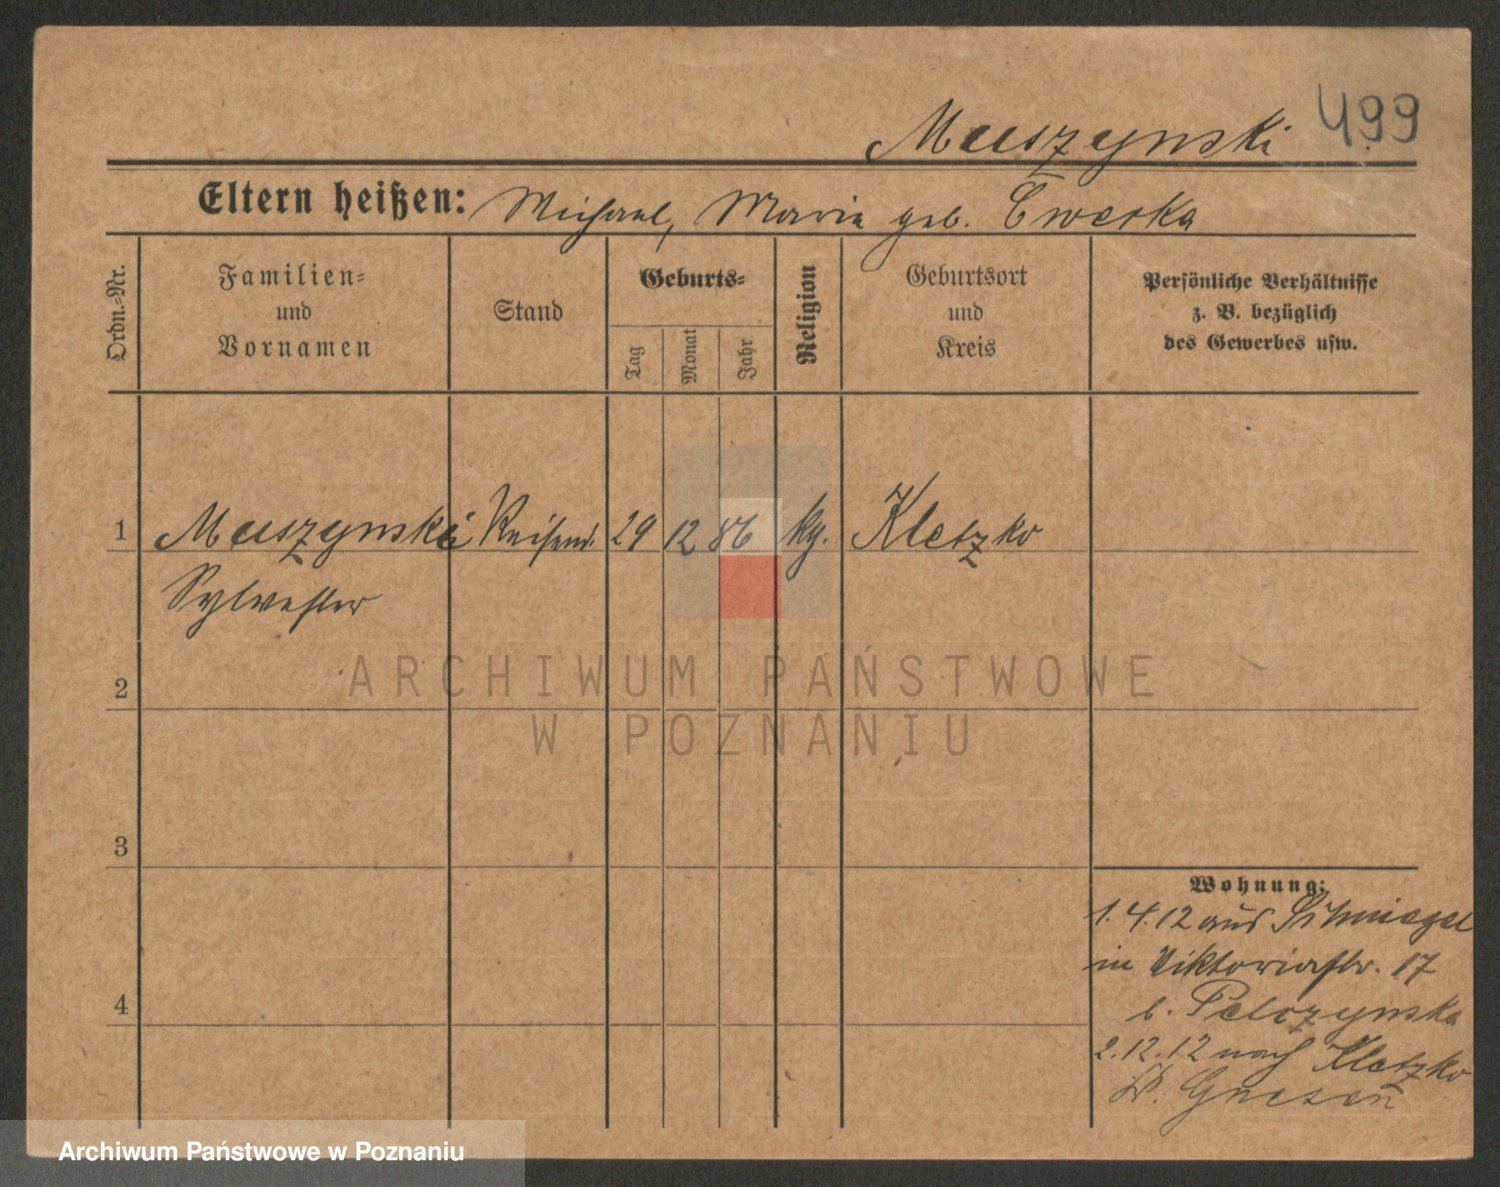 Muszynski 499
Eltern heißen: Michael, Maria geb. Cwerka
Ordn.-Nr.
Familien-
und
Vornamen
Stand
Geburts-
Tag
Monat
Jahr
Religion
Geburtsort
und
Kreis
Persönliche Verhältnisse
z. B. bezüglich
des Gewerbes usw.
1 Muszynski Reisend. 29 12 86 kg. Kletzko
Sylvester
2
3
4
Wohnung:
1.4.12 aus Schmiegel
in Viktoriastr. 17
b. Pelczynska
2.12.12 nach Kletzko
Gnesen
ARCHIWUM PAŃSTWOWE
W POZNANIU
Archiwum Państwowe w Poznaniu